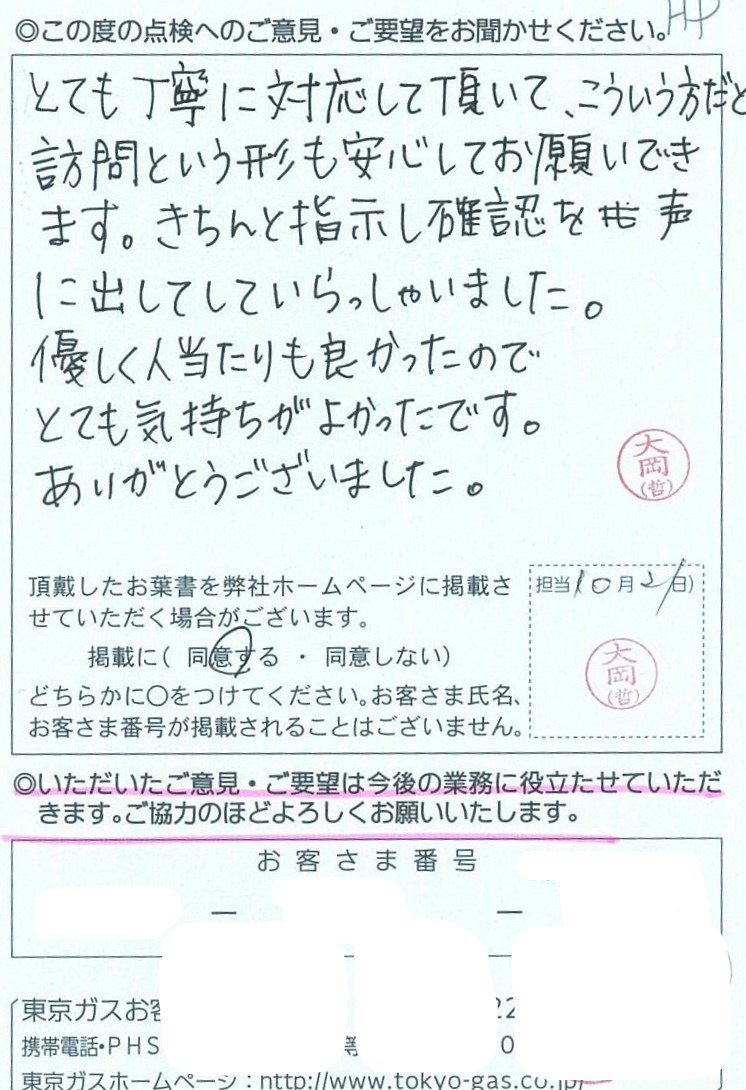 HP
◎この度の点検へのご意見・ご要望をお聞かせください。
とても丁寧に対応して頂いて、こういう方だと
訪問という形も安心してお願いでき
ます。きちんと指示し確認を 声
に出してしていらっしゃいました。
優しく人当たりも良かったので
とても気持ちがよかったです。
ありがとうございました。
大岡(哲)
頂戴したお葉書を弊社ホームページに掲載さ
せていただく場合がございます。
掲載に( 同意する ・ 同意しない)
どちらかに○をつけてください。お客さま氏名、
お客さま番号が掲載されることはございません。
担当 10月21日)
大岡(哲)
◎いただいたご意見・ご要望は今後の業務に役立たせていただ
きます。ご協力のほどよろしくお願いいたします。
お客さま番号
— —
東京ガスお客
携帯電話・PHS 等 0
東京ガスホームページ:http://www.tokyo-gas.co.jp/